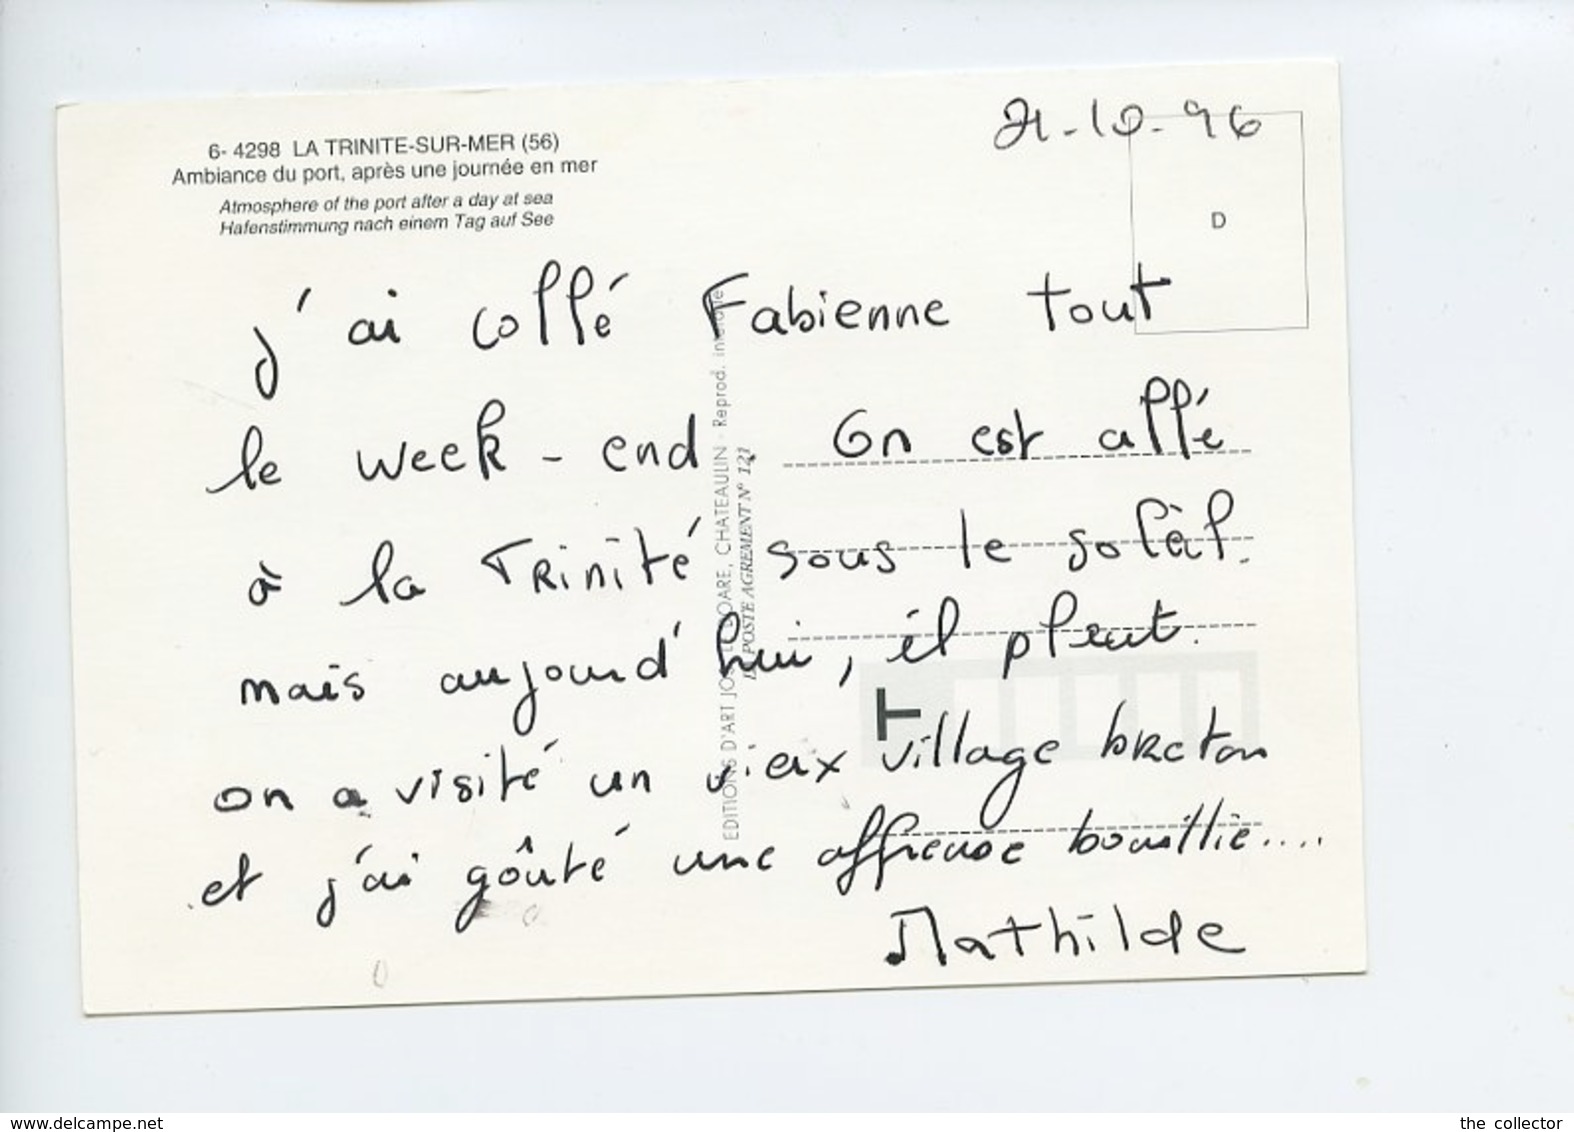 21-10-96
6- 4298 LA TRINITE-SUR-MER (56)
Ambiance du port, après une journée en mer
Atmosphere of the port after a day at sea
Hafenstimmung nach einem Tag auf See
D
j'ai collé Fabienne tout
le week-end. On est allé
à la Trinité sous le solèil.
mais aujourd'hui, il pleut.
on a visité un vieux village breton
et j'ai goûté une affreuse bouillie....
Mathilde
EDITIONS D'ART JOS CHATEAULIN - Reprod.
POSTE AGREMENT N° 121
T
www.delcampe.net
the collector